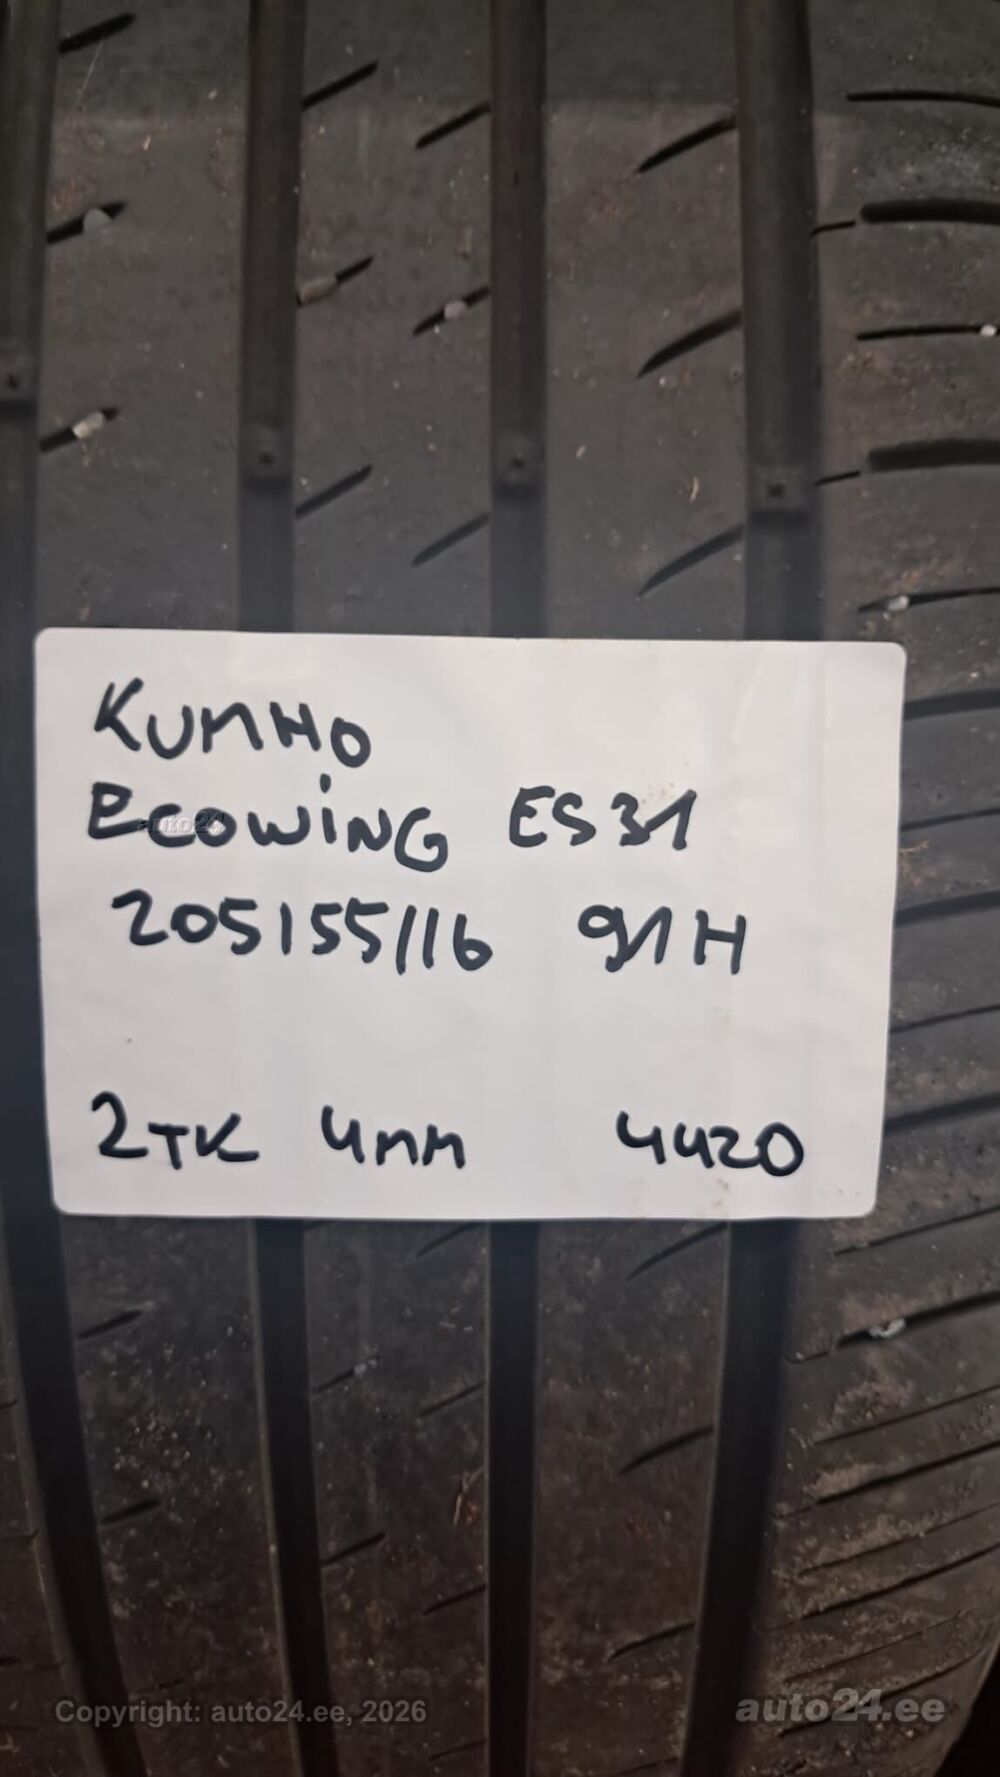 KUMHO
ECOWiNG ES31
205/55/16 91H
2TK 4mm 4420
auto24
Copyright: auto24.ee, 2026
auto24.ee